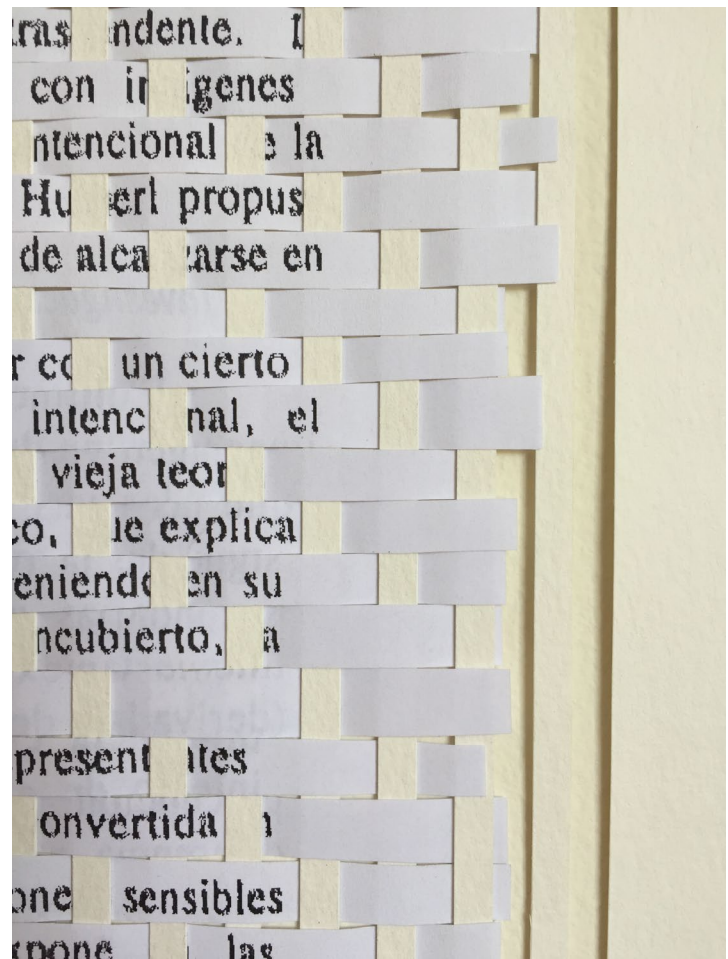 ndente.
con genes
ntencional la
Hu erl propus
de alca arse en
un cierto
intenc nal, el
vieja teor
co, ue explica
eniendo en su
ncubierto, a
present ntes
onvertida
one sensibles
xpone las